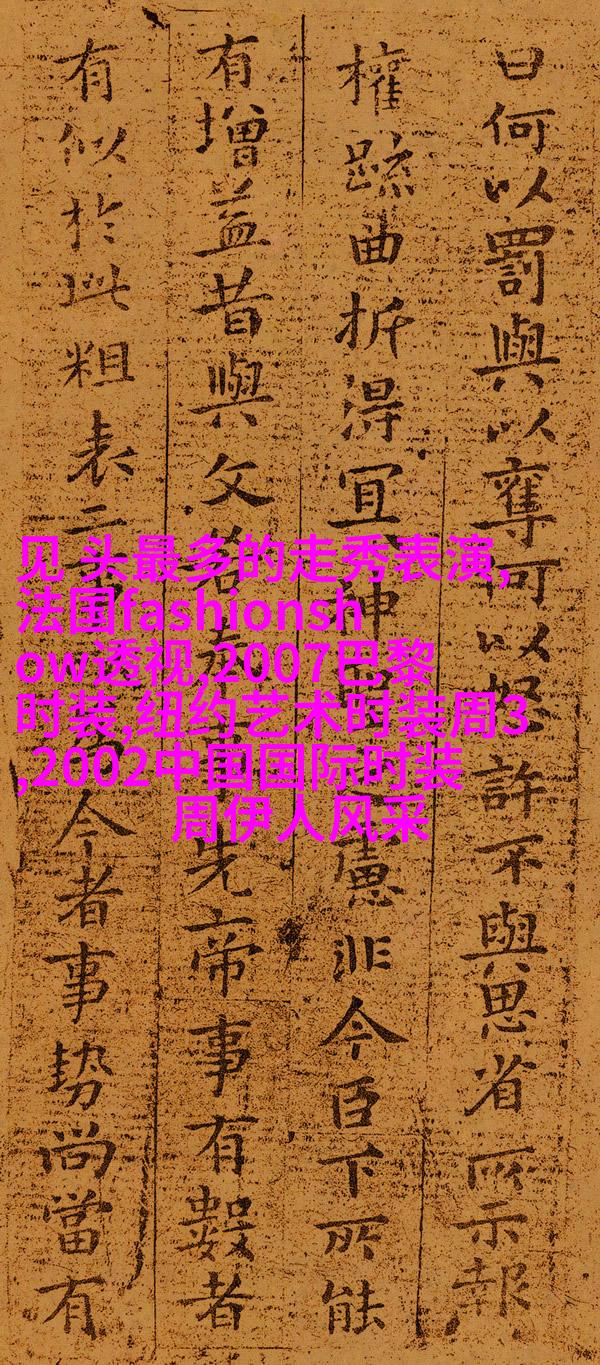 曰何以罰與以奪何以怒許不與思省所示報
權踈曲折得冝神慮非今臣下所能
有增益昔與文若先帝事有數者
有似於此粗表二今者事勢尚當有
见 头最多的走秀表演,
法国fashionsh
ow透视,2007巴黎
时装,纽约艺术时装周3
,2002中国国际时装
周伊人风采